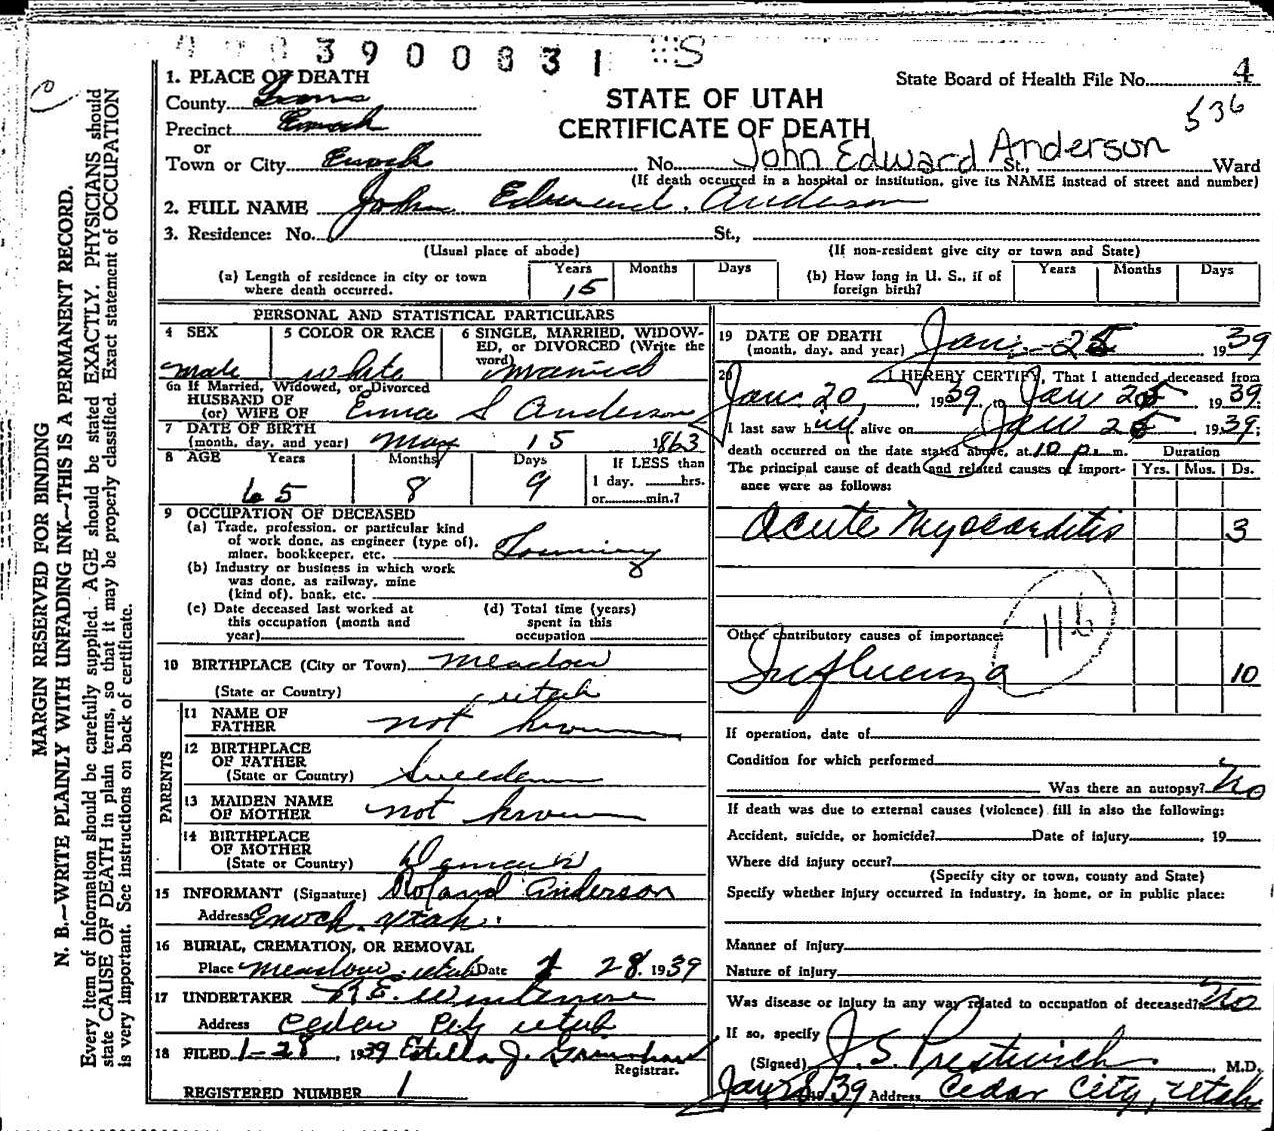 3900031 S
1. PLACE OF DEATH
County
Precinct Enoch
or
Town or City Enoch
State Board of Health File No. 4
536
STATE OF UTAH
CERTIFICATE OF DEATH
No. John Edward Anderson St., Ward
(If death occurred in a hospital or institution, give its NAME instead of street and number)
2. FULL NAME John Edward Anderson
3. Residence: No. St.,
(Usual place of abode) (If non-resident give city or town and State)
(a) Length of residence in city or town where death occurred. Years 15 Months Days
(b) How long in U. S., if of foreign birth? Years Months Days
PERSONAL AND STATISTICAL PARTICULARS
4 SEX male
5 COLOR OR RACE white
6 SINGLE, MARRIED, WIDOW-
ED, or DIVORCED (Write the
word) married
6a If Married, Widowed, or Divorced
HUSBAND OF
(or) WIFE OF Emma S Anderson
7 DATE OF BIRTH
(month, day, and year) May 15 1863
8 AGE Years 65 Months 8 Days 9 If LESS than
1 day, hrs.
or min.?
9 OCCUPATION OF DECEASED
(a) Trade, profession, or particular kind
of work done, as engineer (type of),
miner, bookkeeper, etc.
(b) Industry or business in which work
was done, as railway, mine
(kind of), bank, etc.
(c) Date deceased last worked at
this occupation (month and
year)
(d) Total time (years)
spent in this
occupation
10 BIRTHPLACE (City or Town) Meadow
(State or Country) Utah
PARENTS
11 NAME OF
FATHER not known
12 BIRTHPLACE
OF FATHER
(State or Country) Sweden
13 MAIDEN NAME
OF MOTHER not known
14 BIRTHPLACE
OF MOTHER
(State or Country) Denmark
15 INFORMANT (Signature) Roland Anderson
Address Enoch, Utah.
16 BURIAL, CREMATION, OR REMOVAL
Place Meadow, Utah Date 1 28, 1939
17 UNDERTAKER R.E.
Address Cedar City Utah
18 FILED 1-28, 1939 Estella J.
Registrar.
REGISTERED NUMBER 1
19 DATE OF DEATH
(month, day, and year) Jan. 25 1939
20 I HEREBY CERTIFY, That I attended deceased from
Jan 20, 1939, to Jan 25 1939.
I last saw him alive on Jan 25 1939;
death occurred on the date stated above, at 10 p. m.
The principal cause of death and related causes of import-
ance were as follows:
Duration
Yrs. Mos. Ds.
Acute Myocarditis 3
116
Other contributory causes of importance:
Influenza 10
If operation, date of
Condition for which performed
Was there an autopsy? No
If death was due to external causes (violence) fill in also the following:
Accident, suicide, or homicide? Date of injury , 19
Where did injury occur?
(Specify city or town, county and State)
Specify whether injury occurred in industry, in home, or in public place:
Manner of injury
Nature of injury
Was disease or injury in any way related to occupation of deceased? No
If so, specify
(Signed) J. S. Prestwich, M.D.
Jan 28 1939 Address Cedar City, Utah
MARGIN RESERVED FOR BINDING
N. B.—WRITE PLAINLY WITH UNFADING INK—THIS IS A PERMANENT RECORD.
Every item of information should be carefully supplied. AGE should be stated EXACTLY. PHYSICIANS should
state CAUSE OF DEATH in plain terms, so that it may be properly classified. Exact statement of OCCUPATION
is very important. See instructions on back of certificate.